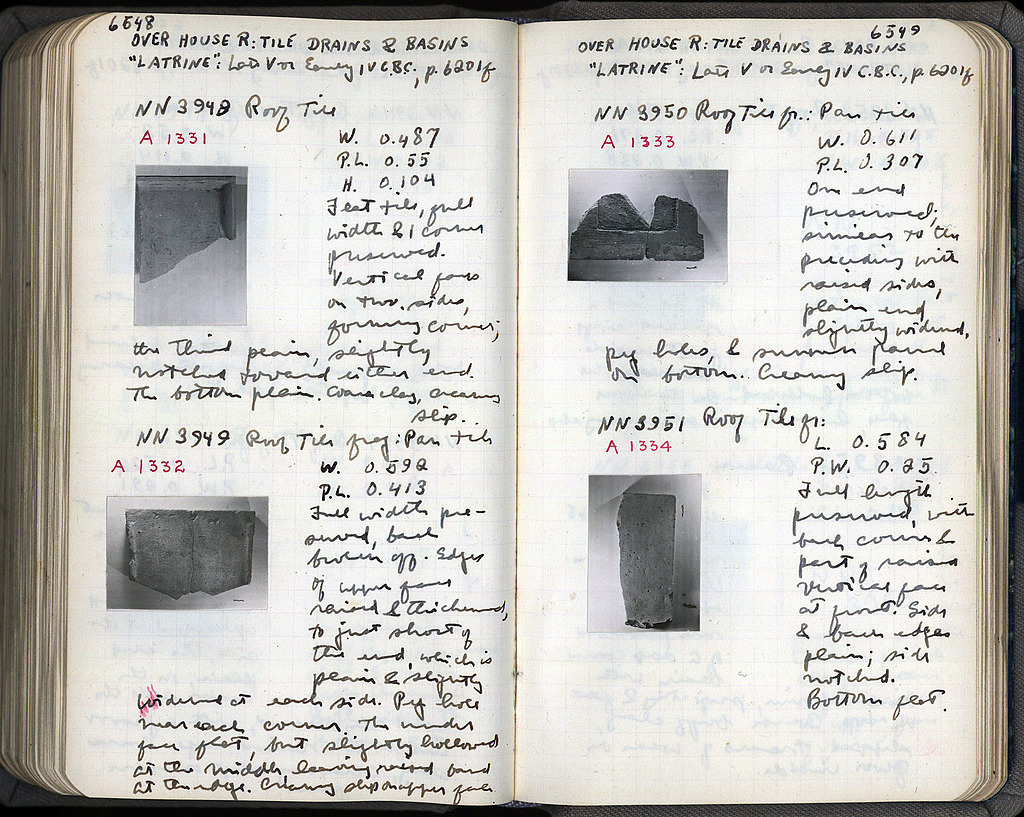 6548
OVER HOUSE R: TILE DRAINS & BASINS
"LATRINE": Late V or Early IV C.B.C., p. 6201f
NN 3948 Roof Tile
A 1331
W. 0.487
P.L. 0.55
H. 0.104
Flat tile, full
width & 1 corner
preserved.
Vertical face
on two sides,
forming corner;
the third plain, slightly
notched toward either end.
The bottom plain. Coarse clay, creamy
slip.
NN 3949 Roof Tile frag: Pan tile
A 1332
W. 0.592
P.L. 0.413
Full width pre-
served, back
broken off. Edges
of upper face
raised & thickened,
to just short of
the end, which is
plain & slightly
widened at each side. Peg hole
near each corner. The under
face flat, but slightly hollowed
at the middle, leaving raised band
at the edge. Creamy slip on upper face
6549
OVER HOUSE R: TILE DRAINS & BASINS
"LATRINE": Late V or Early IV C.B.C., p. 6201f
NN 3950 Roof Tile fr.: Pan tile
A 1333
W. 0.611
P.L. 0.307
One end
preserved;
similar to the
preceding with
raised sides,
plain end
slightly widened,
peg holes, & band
on bottom. Creamy slip.
NN 3951 Roof Tile fr:
A 1334
L. 0.584
P.W. 0.25
Full length
preserved, with
back corner &
part of raised
vertical face
at front. Side
& back edges
plain; side
notched.
Bottom flat.